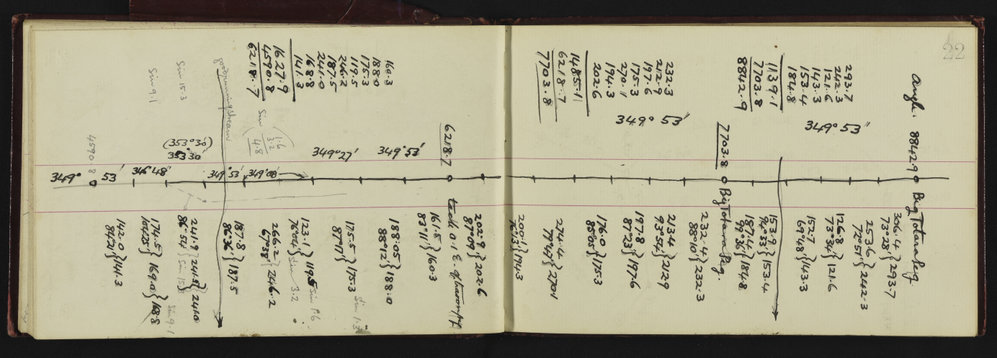 22
Angle. 8842.9 Big Totara Peg
293.7
242.3
121.6
143.3
153.4
184.8
1139.1
7703.8
8842.9
349° 53'
306.4
73°28' } 293.7
253.6
72°51' } 242.3
126.8
73°34' } 121.6
152.7
69°48' } 143.3
153.9
94°33' } 153.4
187.4
99°36' } 184.8
7703.8 Big Totara Peg.
232.3
212.9
197.6
175.3
270.1
194.3
202.6
1485.1
6218.7
7703.8
349° 53'
232.4
88°02' } 232.3
213.4
93°52' } 212.9
197.8
87°23' } 197.6
176.0
85°05' } 175.3
274.4
79°47' } 270.1
200.1
76°13' } 194.3
202.9
87°09' } 202.6
6218.7
161.5
83°11' } 160.3
160.3
188.0
175.3
119.5
246.2
187.5
241.0
168.8
141.3
1627.9
4590.8
6218.7
349° 53'
349° 27'
349° 08'
349° 53'
346° 48'
353° 30'
(353° 30')
349° 53'
4590.8
188.05
88°12' } 188.0
175.5
87°17' } 175.3
123.1
76°02' } 119.5
266.2
67°38' } 246.2
187.8
86°36' } 187.5
241.9
241.0
174.5
169.0 } 168.8
142.0
84°21' } 141.3
Sin
1.6
3.2
4.8
stream
Sin 15.3
Sin 9.1
Sin 3.2